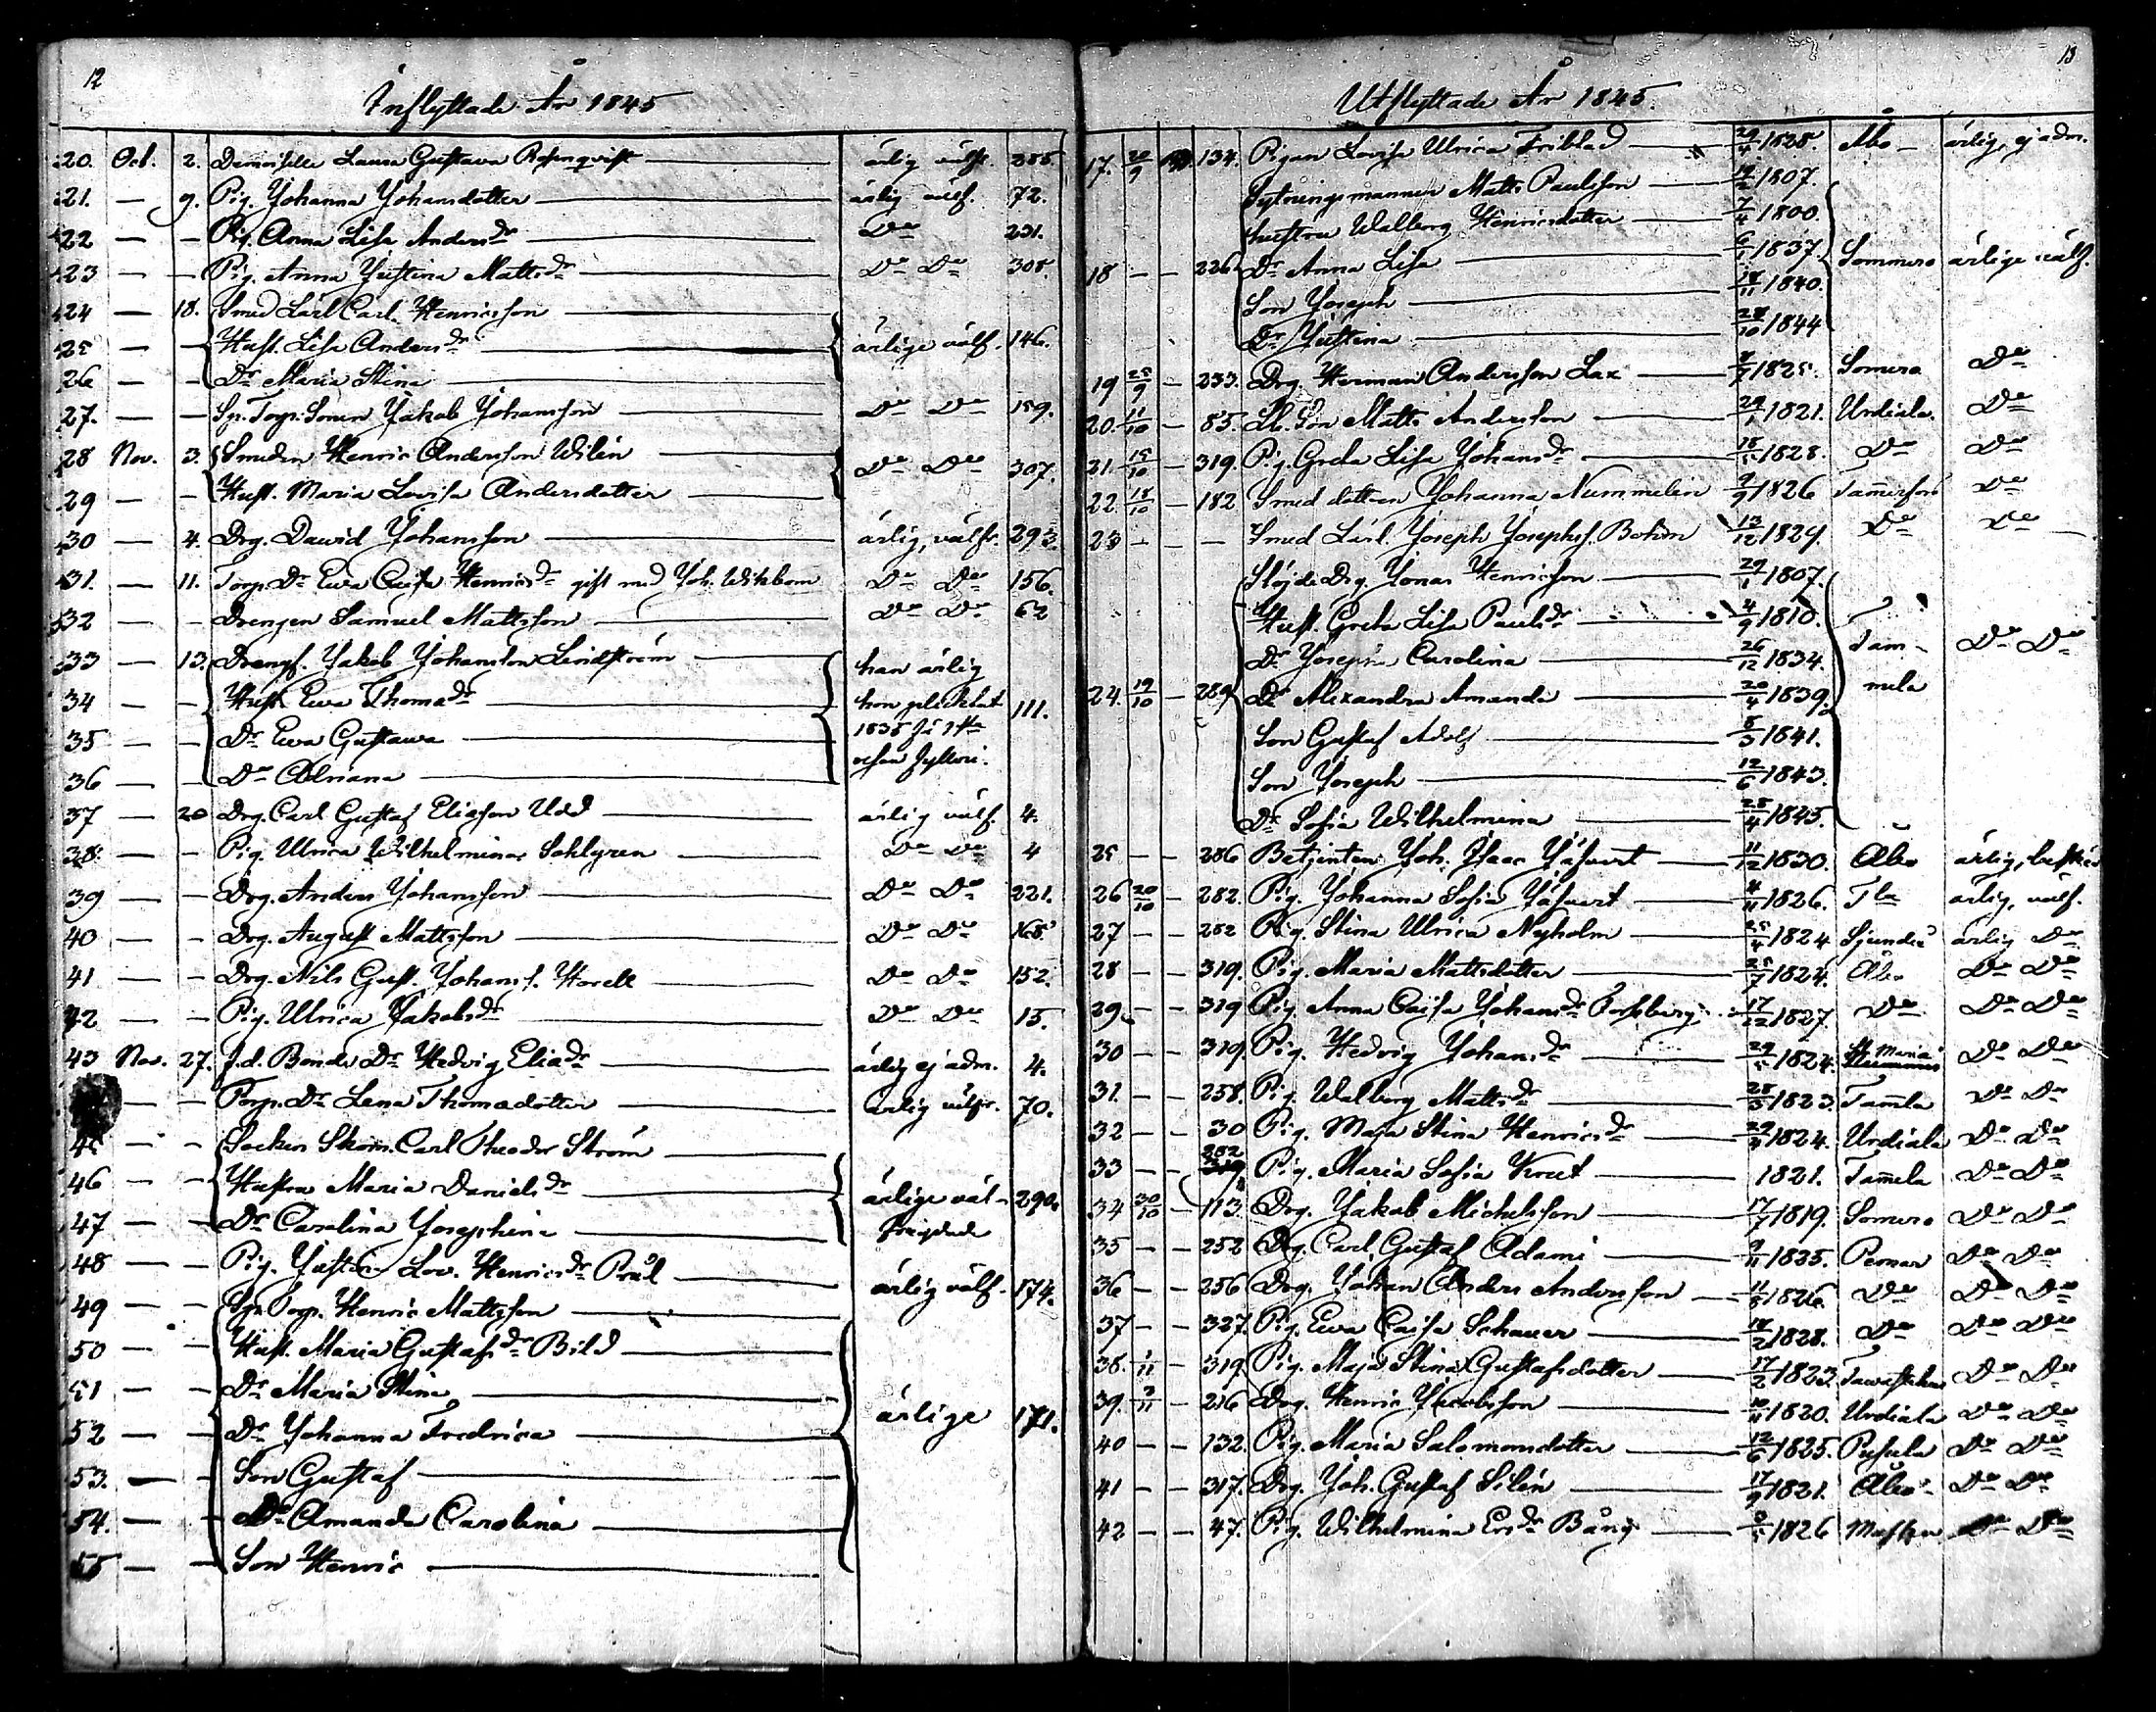 12
Inflyttade År 1845
20. Oct. 2. Demoiselle Laura Gustava Rosenqvist ärlig välfr. 288.
21. — 9. Pig. Johanna Johansdotter ärlig välf. 72.
22 — — Pig. Anna Lisa Anders dr Do 231.
23 — — Pig. Anna Justina Matts dr Do Do 308.
24 — 18. Smed Lärl Carl Henricson
25 — — Hust. Lisa Anders dr ärlige välf. 146.
26 — — Dr Maria Stina
27. — — Sp. Torp. Sonen Jakob Johansson Do Do 159.
28 Nov. 3. Smeden Henric Andersson Wilén Do Do 307.
29 — — Hust. Maria Lovisa Andersdotter
30 — 4. Drg. Dawid Johansson ärlig, välfr. 293.
31. — 11. Torp. Dr Ewa Cajsa Henrics dr gift med Joh. Wikbom Do Do 156.
32 — — Drengen Samuel Mattsson Do Do 62
33 — 13. Drengf. Jakob Johansson Lindström han ärlig
34 — — Hust. Ewa Thoma dr hon 111.
35 — — Dr Ewa Gustawa 1838
36 — — Dr Adriana
37 — 20 Drg. Carl Gustaf Eliasson Udd ärlig välf. 4.
38. — — Pig. Ulrica Wilhelmina Sahlgren Do Do 4
39 — — Drg. Anders Johansson Do Do 221.
40 — — Drg. August Mattsson Do Do 168.
41 — — Drg. Nils Gust. Johanss. Horell Do Do 152.
42 — — Pig. Ulrica Jakobs dr Do Do 15.
43 Nov. 27. f.d. Bonde Dr Hedvig Elia dr ärlig ej adm. 4.
— — Torp. Dr Lena Thomadotter ärlig välfr. 70.
45 — — Socken Skom. Carl Theodor Ström
46 — — Hustru Maria Daniels dr ärlige väl- 290.
47 — — Dr Carolina Josephina frejdade
48 — — Pig. Justina Lov. Henrics dr ärlig välf. 174.
49 — — Sp. Torp. Henric Mattsson
50 — — Hust. Maria Gustafs dr Bild
51 — — Dr Maria Stina
52 — — Dr Johanna Fredrica ärlige 171.
53. — — Son Gustaf
54. — — Dr Amanda Carolina
55 — — Son Henric
13
Utflyttade År 1845.
17. 20/9 134. Pigan Lovisa Ulrica Friblad 29/4 1828. Åbo ärlig, ej adm.
Sytningsmannen Matts Paulsson 1807.
hustru Walborg Henricsdotter 7/4 1800.
18 — — 226 Dr Anna Lisa 1837. Sommero ärlige välf.
Son Joseph 1840.
Dr Justina 28/10 1844
19 25/9 — 233. Drg. Herman Andersson Lax 1825. Somero Do
20. 11/10 — 85. Son Matts Andersson 29/1 1821. Urdiala Do
21. 15/10 — 319. Pig. Greta Lisa Johans dr 1828. Do Do
22. 18/10 — 182 Smed dottren Johanna Nummelin 9/9 1826 Tamerfors Do
23 — — — Smed Lärl. Joseph Josephs. Bohm 13/12 1829. Do Do
Slöjde Drg. Jonas Henricson 29/1 1807.
Hust. Greta Lisa Pauls dr 4/9 1810.
Dr Josepha Carolina 26/12 1834. Tam- Do Do
24. 19/10 — 289 Dr Alexandra Amanda 20/4 1839. mela
Son Gustaf Adolf 5/3 1841.
Son Joseph 12/6 1843.
Dr Sofia Wilhelmina 25/4 1845.
25 — — 286 Betjenten Joh. Isaac 11/12 1830. Åbo ärlig,
26 20/10 — 282. Pig. Johanna Sofia 4/11 1826. Tla ärlig, välf.
27 — — 282 Pig. Stina Ulrica Nyholm 1824 Sjundeå ärlig Do
28 — — 319. Pig. Maria Mattsdotter 25/7 1824. Åbo Do Do
29 — — 319 Pig. Anna Caisa Johans dr Forsberg 17/12 1827. Do Do Do
30 — — 319. Pig. Hedvig Johans dr 1824. St. Maria Do Do
31. — — 258. Pig. Walborg Matts dr 28/3 1823. Tamla Do Do
32 — — 30 Pig. Maja Stina Henrics dr 1824. Urdiala Do Do
33 — — 282 Pig. Maria Sofia Krut 1821. Tamela Do Do
34 30/10 — 113. Drg. Jakob Michelsson 17/7 1819. Somero Do Do
35 — — 252 Drg. Carl Gustaf Adami 9/11 1825. Pemar Do Do
36 — — 256 Drg. Johan Anders Andersson 1826. Do Do Do
37 — — 327. Pig. Ewa Caisa Schauer 18/2 1828. Do Do Do
38. 1/11 — 319. Pig. Maja Stina Gustafsdotter 17/2 1823. Tawastehus Do Do
39. 3/11 — 216 Drg. Henric Jacobsson 10/11 1820. Urdiala Do Do
40 — — 132. Pig. Maria Salomonsdotter 12/6 1825. Pusula Do Do
41 — — 317. Drg. Joh. Gustaf Silén 17/9 1821. Åbo Do Do
42 — — 47. Pig. Wilhelmina Ers dr Bång 1826 Do Do